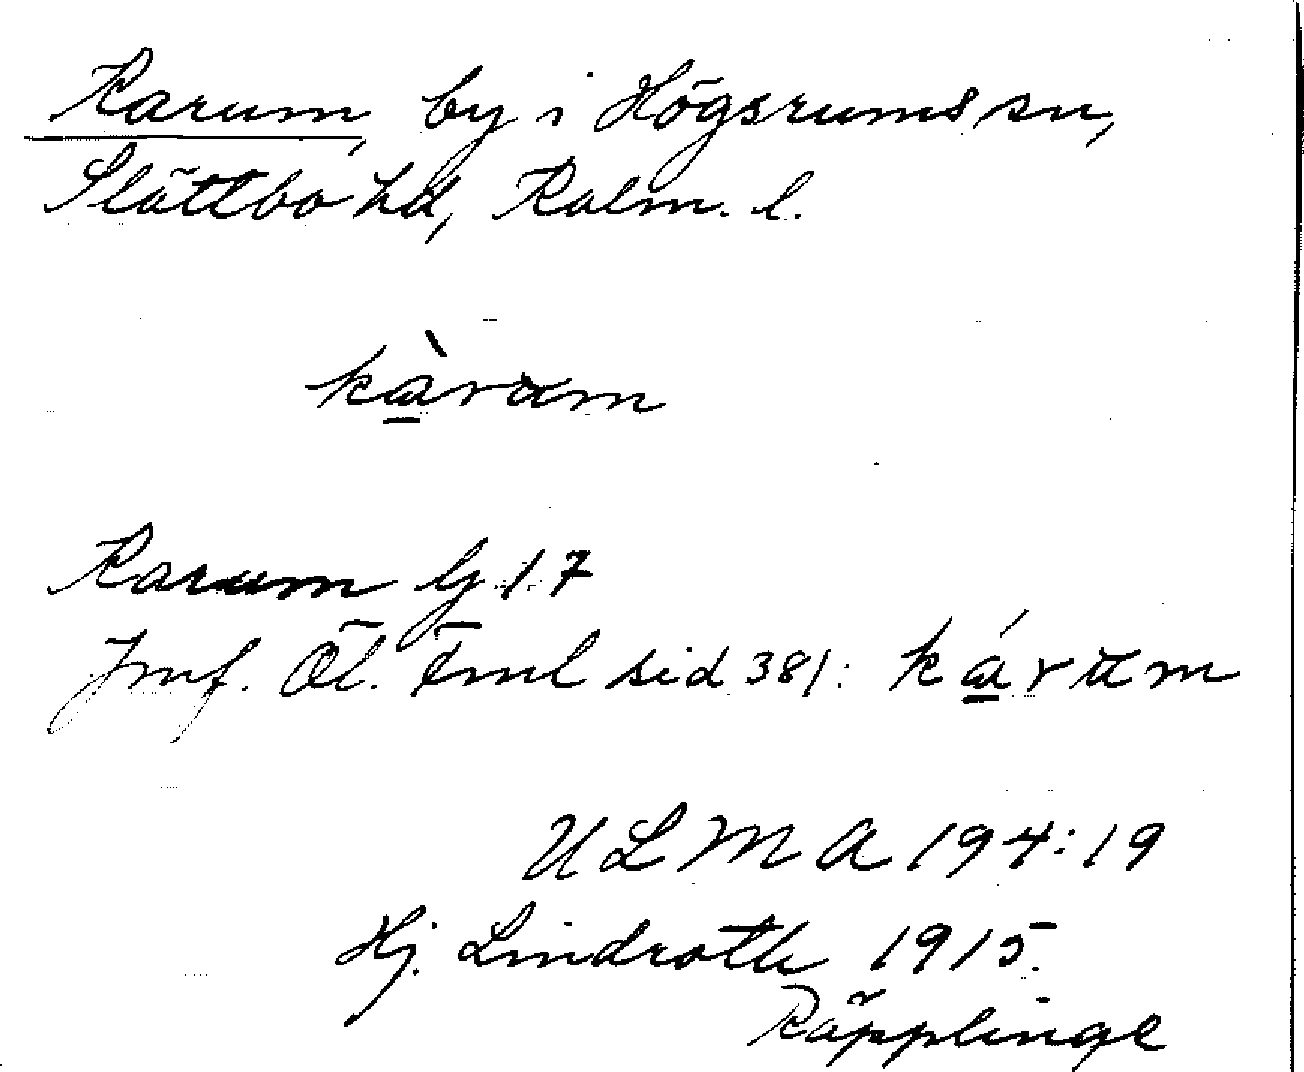 Karum, by i Högsrums sn,
Slättbo hd, Kalm. l.
kàrum
Karum G 1.7
Jmf. Öl. Fml sid 381: kárum
ULMA 194:19
Hj. Lindroth 1915.
Räpplinge